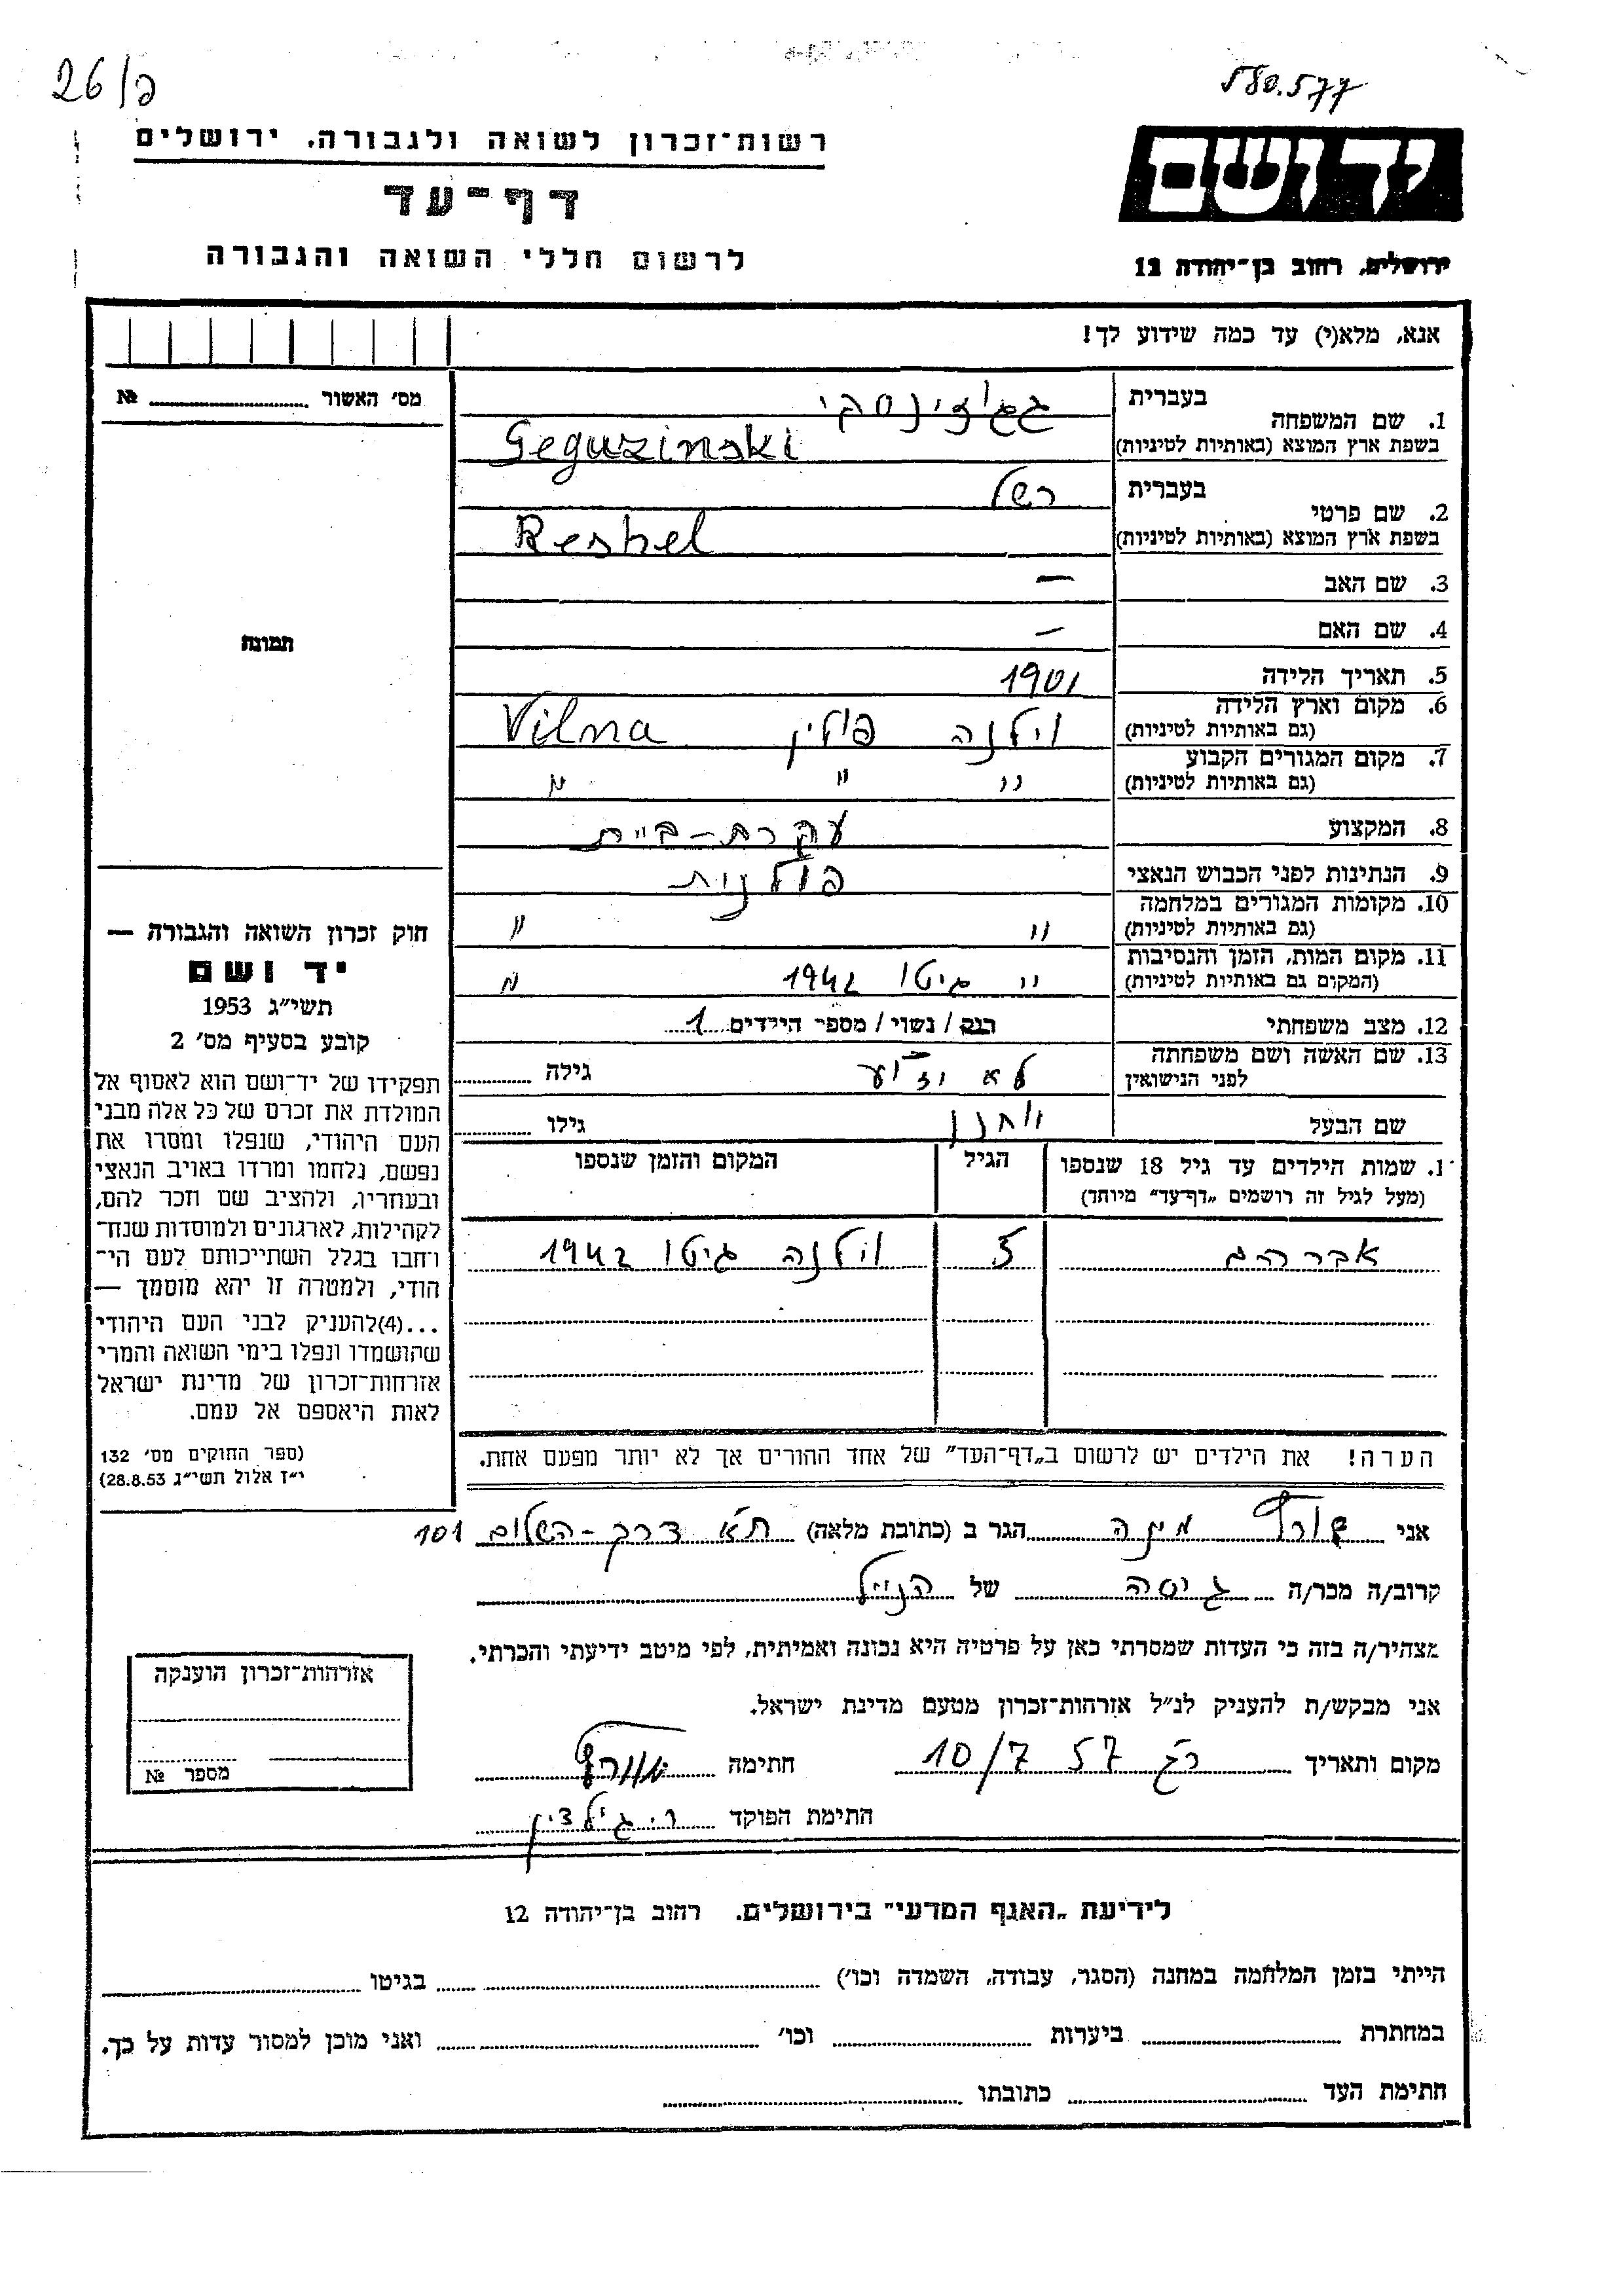 26/פ
580.577
רשות־זכרון לשואה ולגבורה, ירושלים
דף־עד
לרשום חללי השואה והגבורה
יד ושם
ירושלים, רחוב בן־יהודה 12
אנא, מלא(י) עד כמה שידוע לך!
מס׳ האשור № 
1. שם המשפחה בעברית
בשפת ארץ המוצא (באותיות לטיניות) Geguzinski
2. שם פרטי בעברית רשל
בשפת ארץ המוצא (באותיות לטיניות) Reshel
3. שם האב —
4. שם האם —
5. תאריך הלידה 1901
6. מקום וארץ הלידה (גם באותיות לטיניות) וילנה פולין Vilna
7. מקום המגורים הקבוע (גם באותיות לטיניות) " " "
8. המקצוע עקרת-בית
9. הנתינות לפני הכבוש הנאצי פולנית
10. מקומות המגורים במלחמה (גם באותיות לטיניות) " "
11. מקום המות, הזמן והנסיבות (המקום גם באותיות לטיניות) " גיטו 1942 "
12. מצב משפחתי רווק / נשוי / מספר הילדים 1
13. שם האשה ושם משפחתה לפני הנישואין לא ידוע גילה
שם הבעל יוחנן גילו
1. שמות הילדים עד גיל 18 שנספו
(מעל לגיל זה רושמים „דף־עד״ מיוחד)
הגיל
המקום והזמן שנספו
אברהם 5 וילנה גיטו 1942
הערה! את הילדים יש לרשום ב„דף־העד״ של אחד ההורים אך לא יותר מפעם אחת.
תמונה
חוק זכרון השואה והגבורה —
יד ושם
תשי״ג 1953
קובע בסעיף מס׳ 2
תפקידו של יד־ושם הוא לאסוף אל
המולדת את זכרם של כל אלה מבני
העם היהודי, שנפלו ומסרו את
נפשם, נלחמו ומרדו באויב הנאצי
ובעוזריו, ולהציב שם וזכר להם,
לקהילות, לארגונים ולמוסדות שנח־
רבו בגלל השתייכותם לעם הי־
הודי, ולמטרה זו יהא מוסמך —
...(4)להעניק לבני העם היהודי
שהושמדו ונפלו בימי השואה והמרי
אזרחות־זכרון של מדינת ישראל
לאות היאספם אל עמם.
(ספר החוקים מס׳ 132
י״ז אלול תשי״ג 28.8.53)
אני שורף מינה הגר ב (כתובת מלאה) ת"א דרך-השלום 101
קרוב/ה מכר/ה גיסה של הנ"ל
מצהיר/ה בזה כי העדות שמסרתי כאן על פרטיה היא נכונה ואמיתית, לפי מיטב ידיעתי והכרתי.
אני מבקש/ת להעניק לנ״ל אזרחות־זכרון מטעם מדינת ישראל.
מקום ותאריך ר"ג 10/7 57 חתימה שורף
חתימת הפוקד
אזרחות־זכרון הוענקה
מספר №
לידיעת „האגף המדעי״ בירושלים, רחוב בן־יהודה 12
הייתי בזמן המלחמה במחנה (הסגר, עבודה, השמדה וכו׳) בגיטו
במחתרת ביערות וכו׳ ואני מוכן למסור עדות על כך.
חתימת העד כתובתו